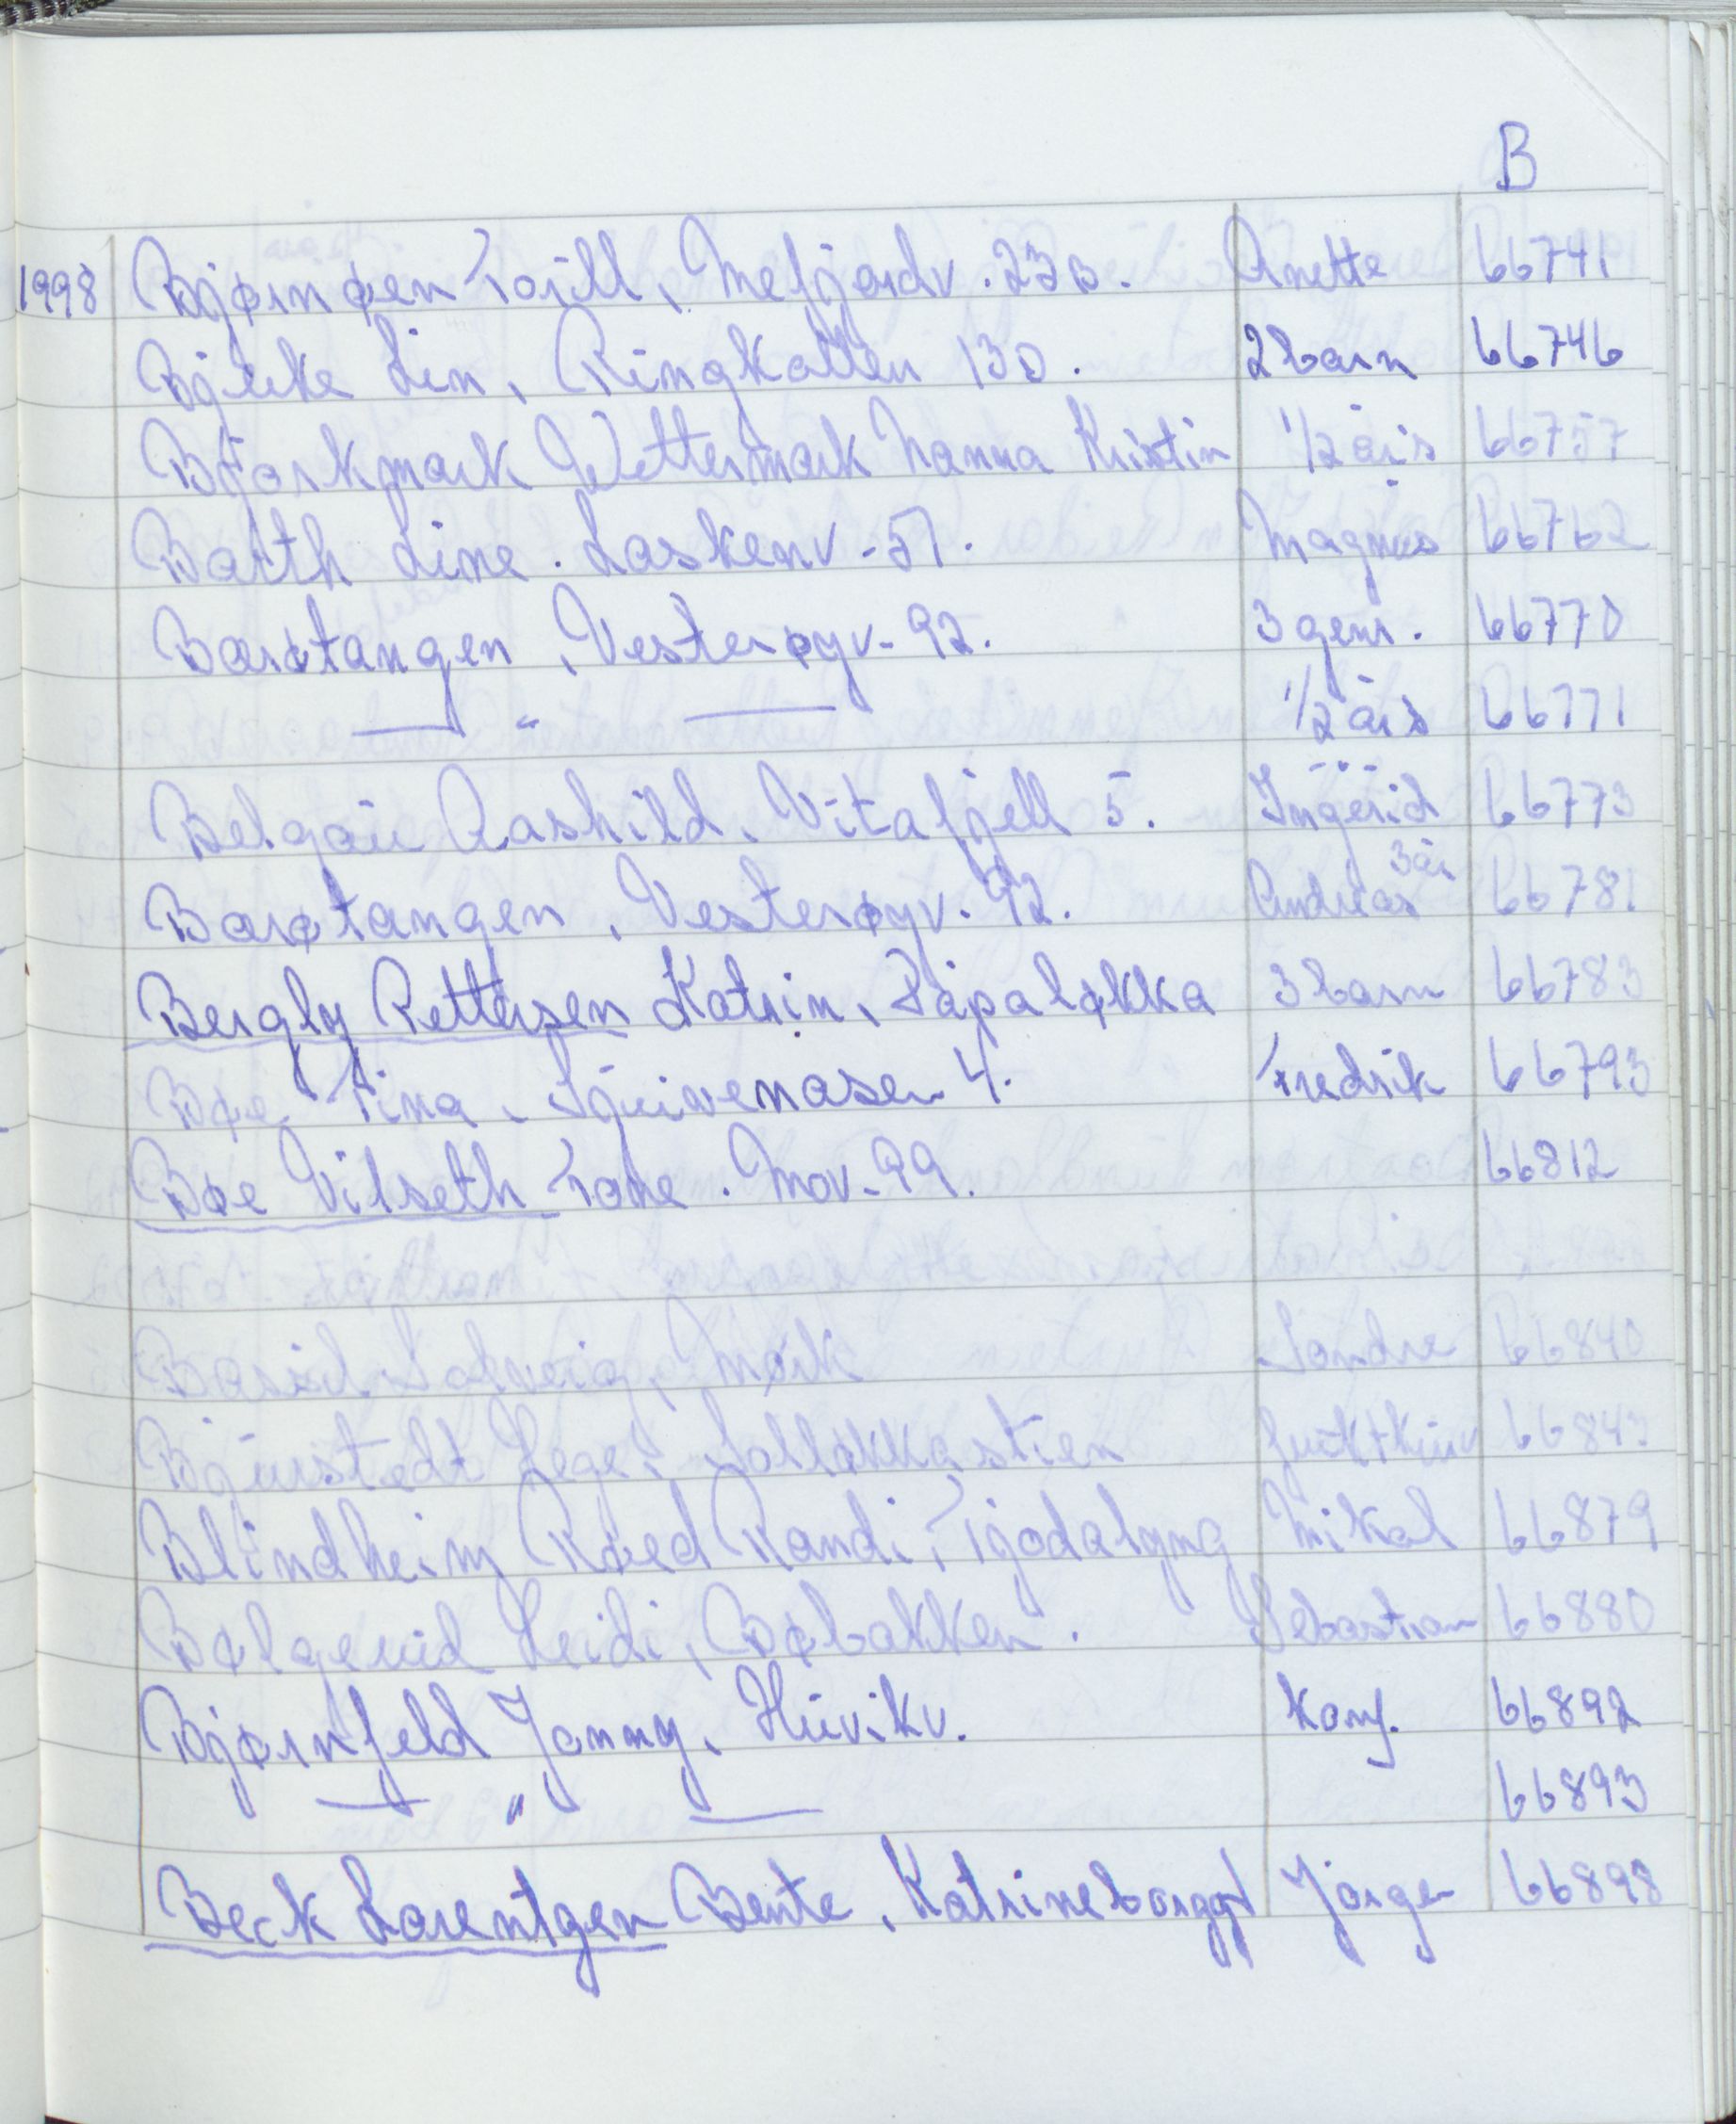 B
1998 Bjørnøen Toril, Mefjordv. 23B. Anette 66741
Bjerke Lin, Ringkallen 130. 2 barn 66746
Björkmark Wettermark Nanna Kristin 1/2 års 66757
Barth Line. Laskenv-57. Magnus 66762
Barøtangen, Vesterøyv-92. 3 gener. 66770
— " — 1/2 års 66771
Belgau Aashild, Vitafjell 5. Ingerid 66773
Barøtangen, Vesterøyv. 92. Andreas 3år 66781
Bergly Pettersen Katrin, Papaløkka 3 barn 66783
Bøe Tina, 4. Fredrik 66793
Bøe Vilseth Tone. Nov-99. 66812
Solveig, Mørk Sondre 66840
Bjurstedt Hege, Solløkkastien 66843
Blindheim Røed Randi, Tjodalyng Mikal 66879
Bølgerud Heidi, Bøbakken. Sebastian 66880
Bjørnfeld Jonny, Huvikv. Konf. 66892
— " — 66893
Beck Lorentzen Bente, Katrineborggt Jørgen 66898